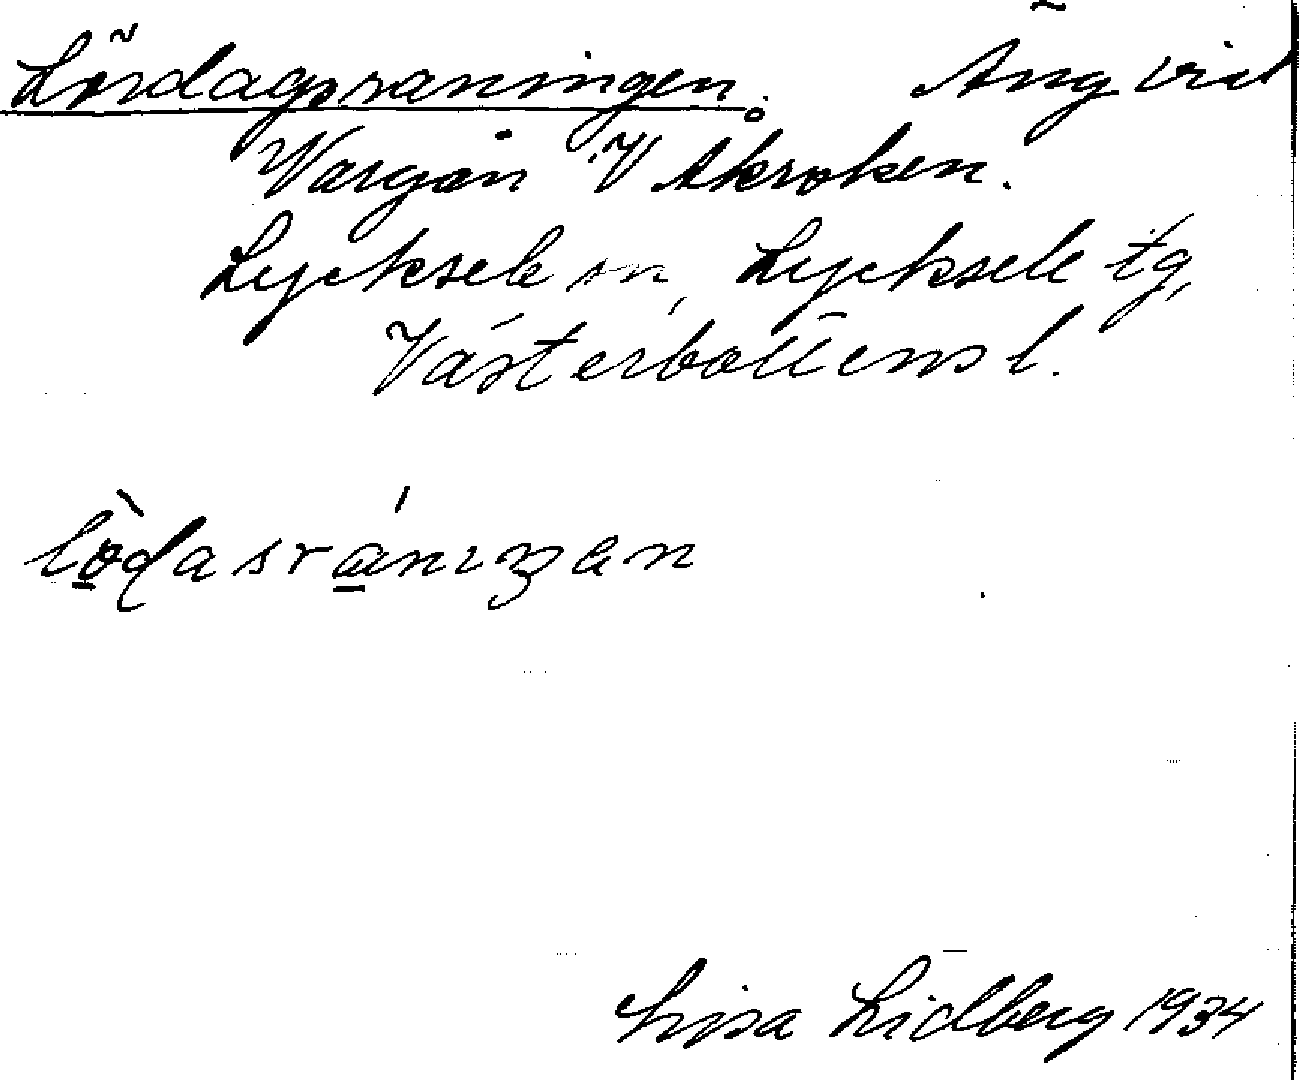 Lördagsraningen. Äng vid
Vargån V Åkroken.
Lycksele sn, Lycksele tg,
Västerbottens l.
lò̱dasrá̱niŋen
Lisa Lidberg 1934